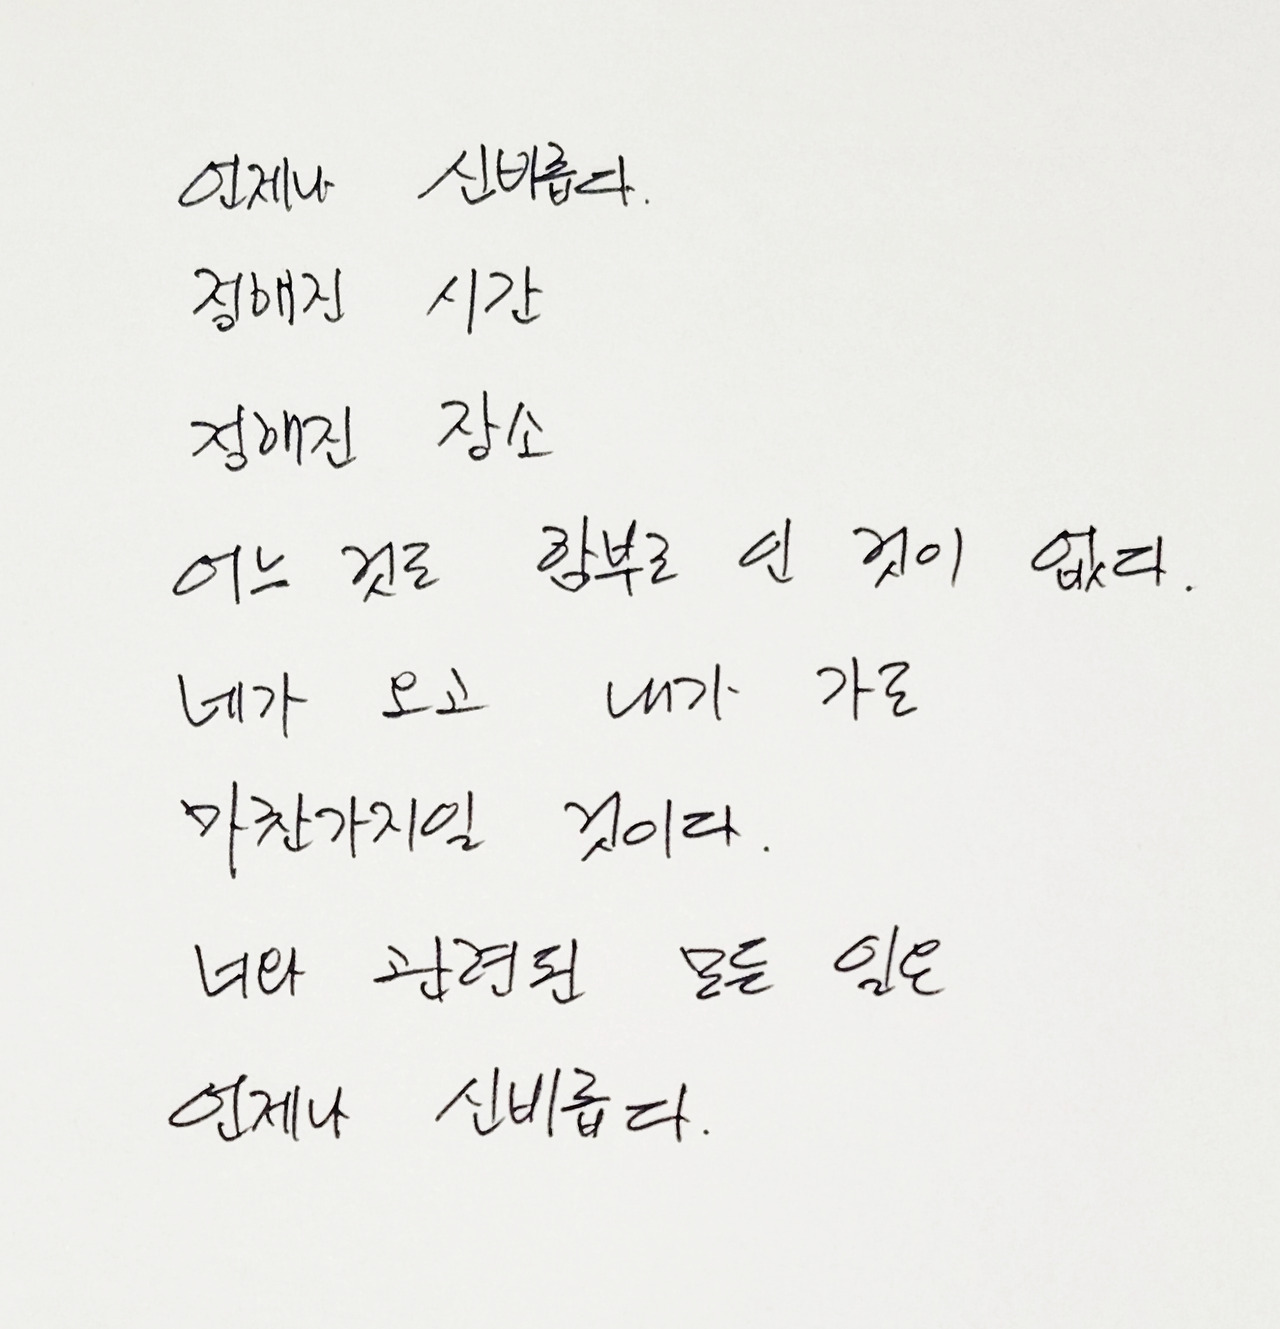 언제나 신비롭다.
정해진 시간
정해진 장소
어느 것도 함부로 인 것이 없다.
네가 오고 내가 가도
마찬가지일 것이다.
너와 관련된 모든 일은
언제나 신비롭다.